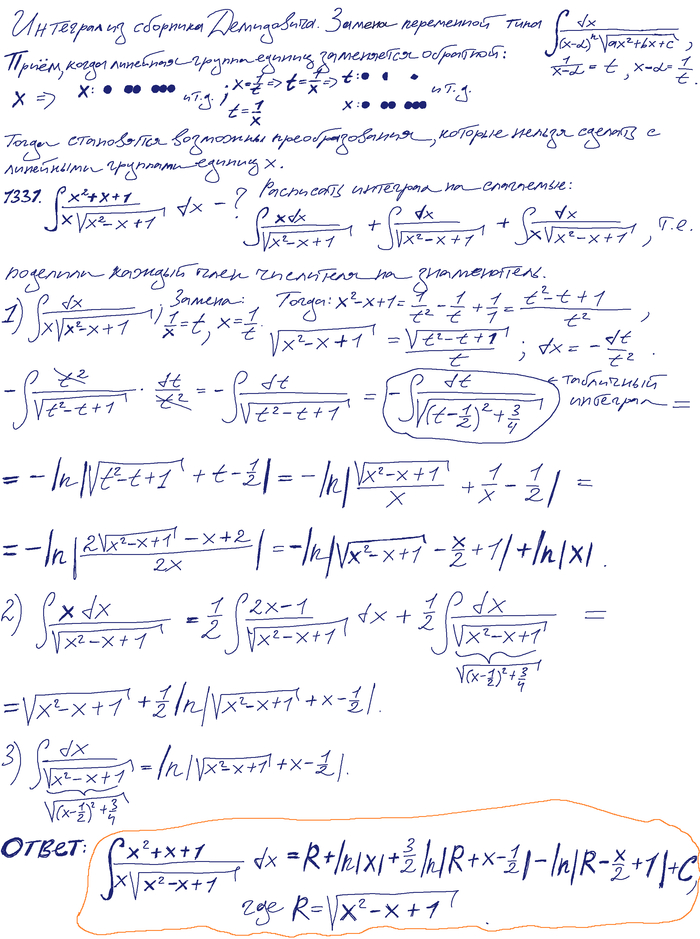 Интеграл из сборника Демидовича. Замена переменной типа ∫ dx/((x-α)ⁿ√(ax²+bx+c)),
Приём, когда линейная группа единиц заменяется обратной: 1/(x-α) = t, x-α = 1/t.
x ⇒ x: • •• ••• и т.д. ; x=1/t ⇒ t=1/x ⇒ t: • • • и т.д.
t=1/x x: • •• •••
Тогда становятся возможны преобразования, которые нельзя сделать с
линейными группами единиц x.
1331. ∫ (x²+x+1)/(x√(x²-x+1)) dx - ? Расписать интеграл на слагаемые:
∫ xdx/√(x²-x+1) + ∫ dx/√(x²-x+1) + ∫ dx/(x√(x²-x+1)), т.е.
поделили каждый член числителя на знаменатель.
1) ∫ dx/(x√(x²-x+1)); Замена: 1/x=t, x=1/t. Тогда: x²-x+1 = 1/t² - 1/t + 1/1 = (t²-t+1)/t²,
√(x²-x+1) = √(t²-t+1)/t ; dx = -dt/t².
-∫ t²/√(t²-t+1) · dt/t² = -∫ dt/√(t²-t+1) = -∫ dt/√((t-1/2)²+3/4) ← табличный интеграл =
= -ln|√(t²-t+1) + t-1/2| = -ln|√(x²-x+1)/x + 1/x - 1/2| =
= -ln|(2√(x²-x+1) - x+2)/2x| = -ln|√(x²-x+1) - x/2 + 1| + ln|x|.
2) ∫ x dx/√(x²-x+1) = 1/2 ∫ (2x-1)/√(x²-x+1) dx + 1/2 ∫ dx/√(x²-x+1) =
√((x-1/2)²+3/4)
= √(x²-x+1) + 1/2 ln|√(x²-x+1) + x-1/2|.
3) ∫ dx/√(x²-x+1) = ln|√(x²-x+1) + x-1/2|.
√((x-1/2)²+3/4)
Ответ: ∫ (x²+x+1)/(x√(x²-x+1)) dx = R+ln|x|+3/2 ln|R+x-1/2| - ln|R-x/2+1|+C,
где R=√(x²-x+1)